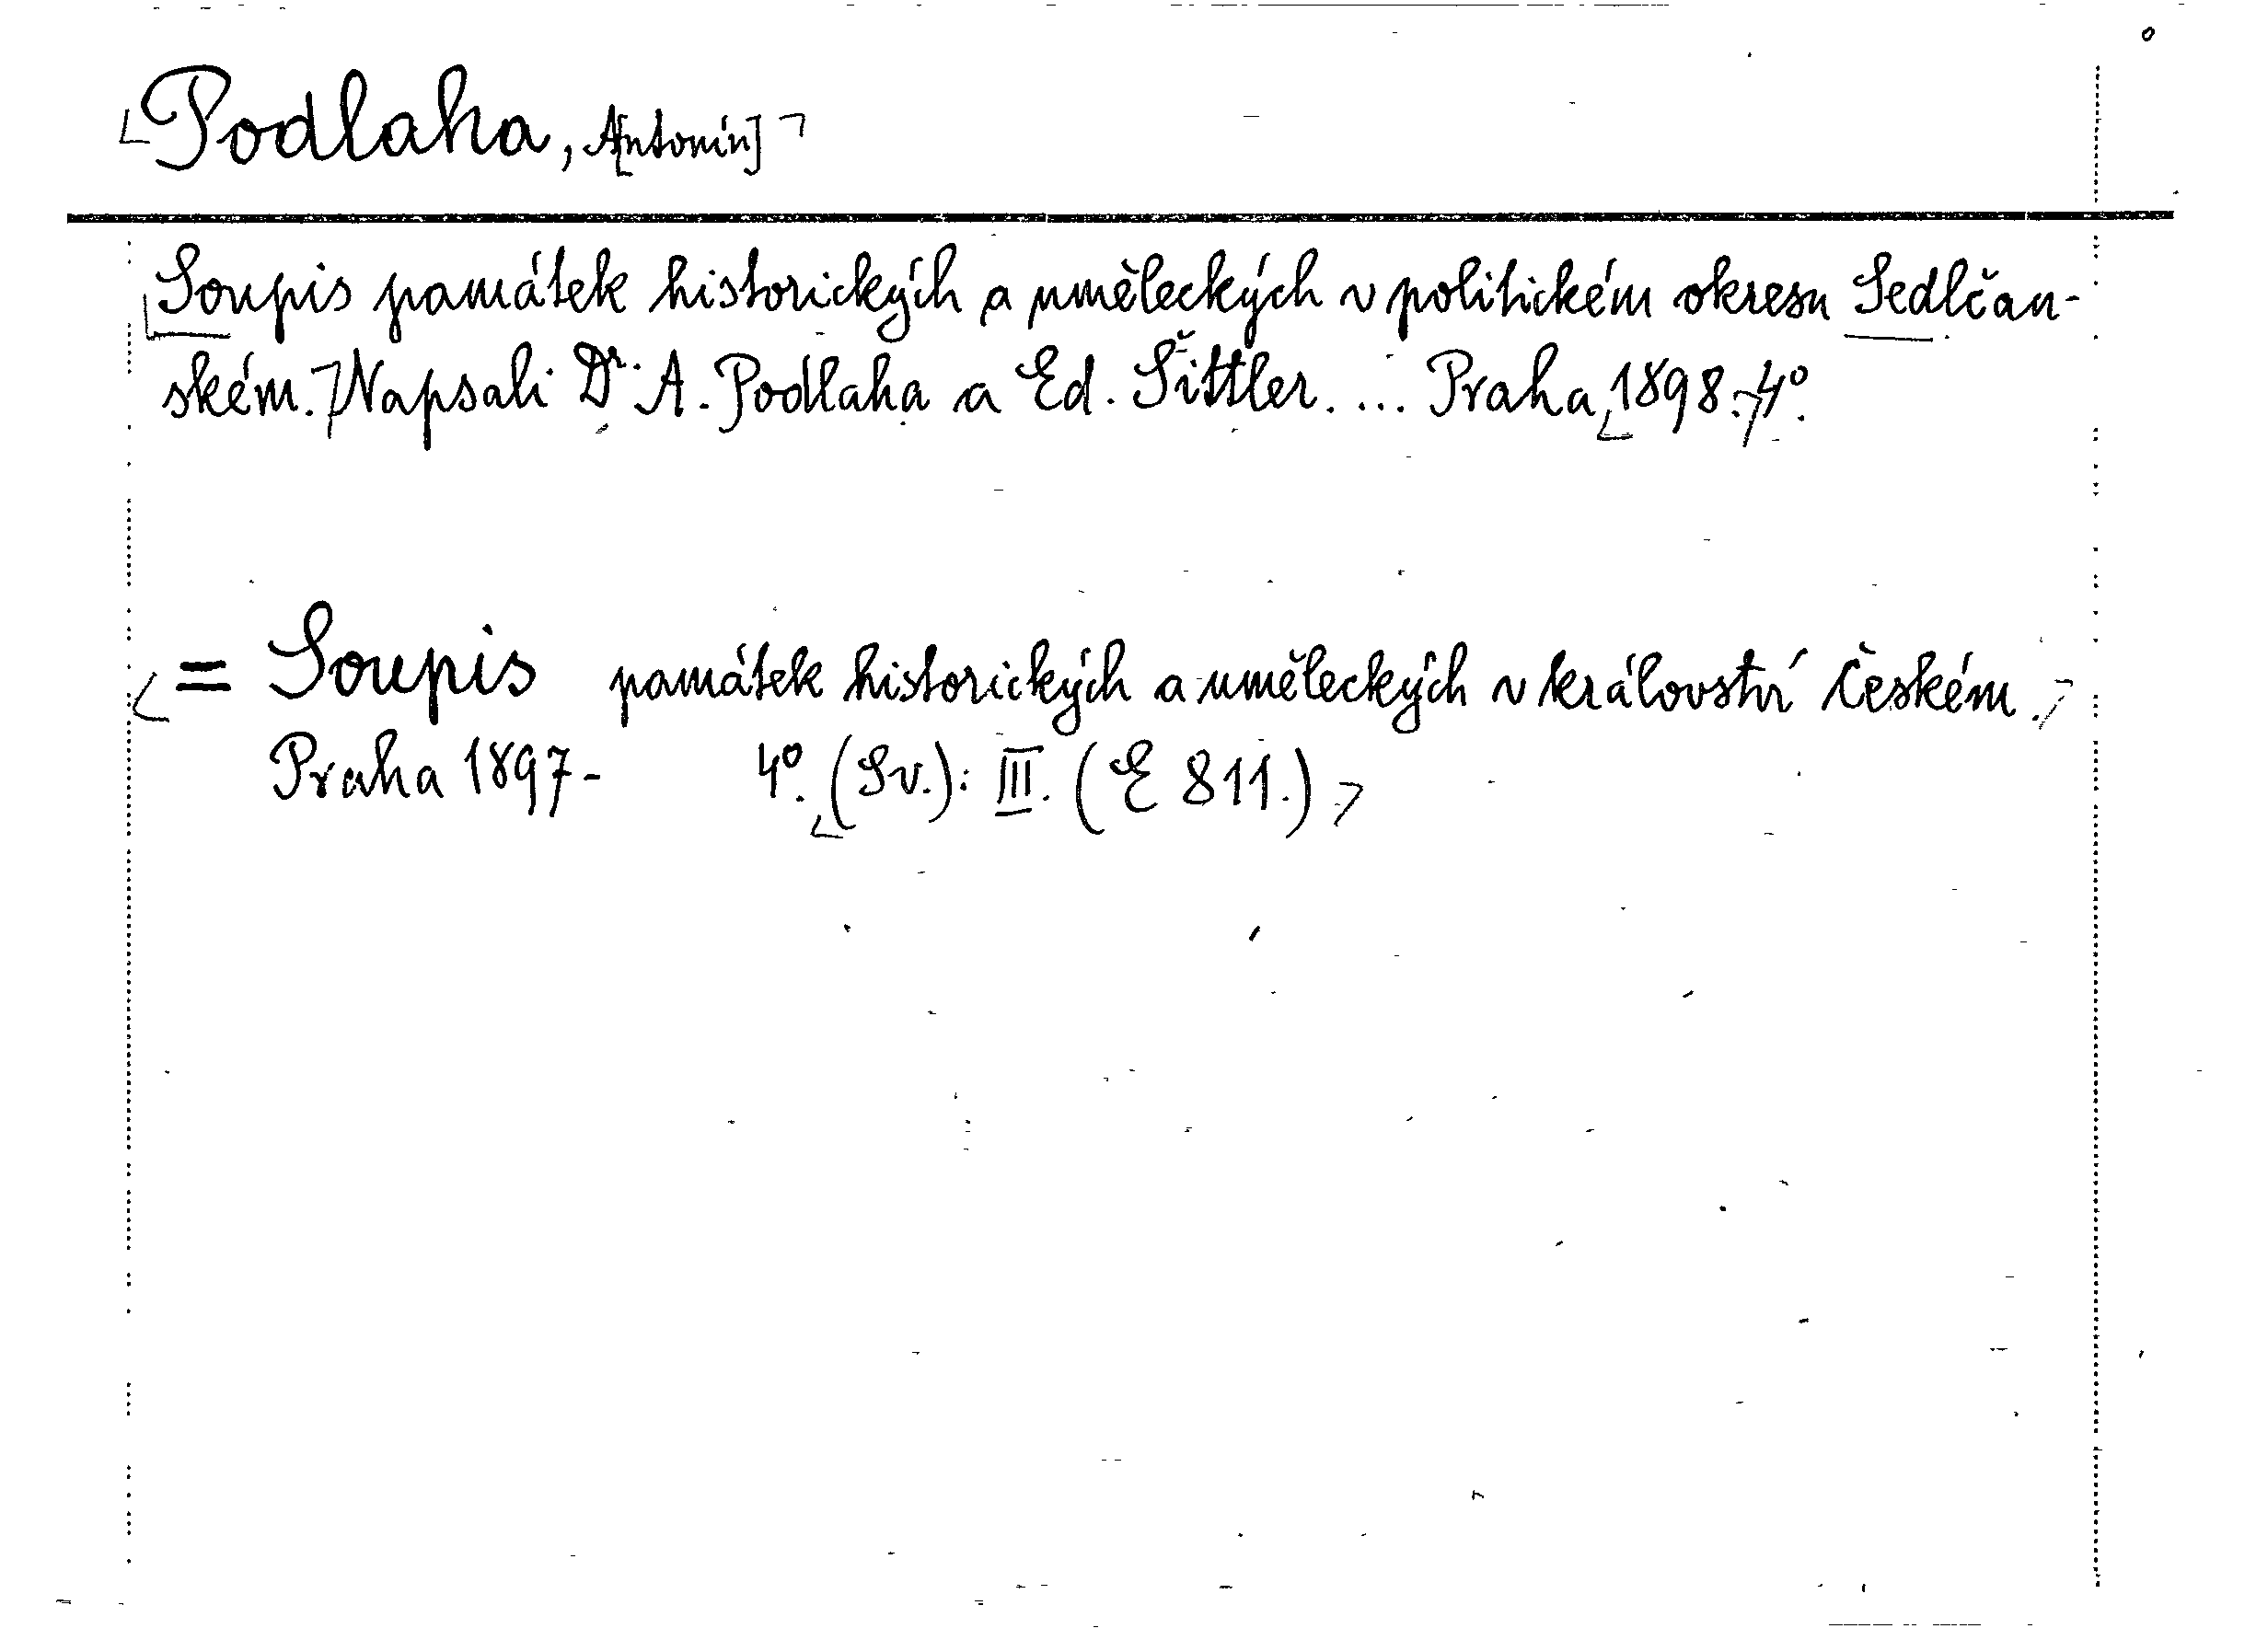 Podlaha, A[ntonín]
Soupis památek historických a uměleckých v politickém okresu Sedlčan-
ském. Napsali Dr. A. Podlaha a Ed. Šittler. ... Praha 1898. 4°.
= Soupis památek historických a uměleckých v království Českém.
Praha 1897- 4°. (Sv.): III. (E 811.)